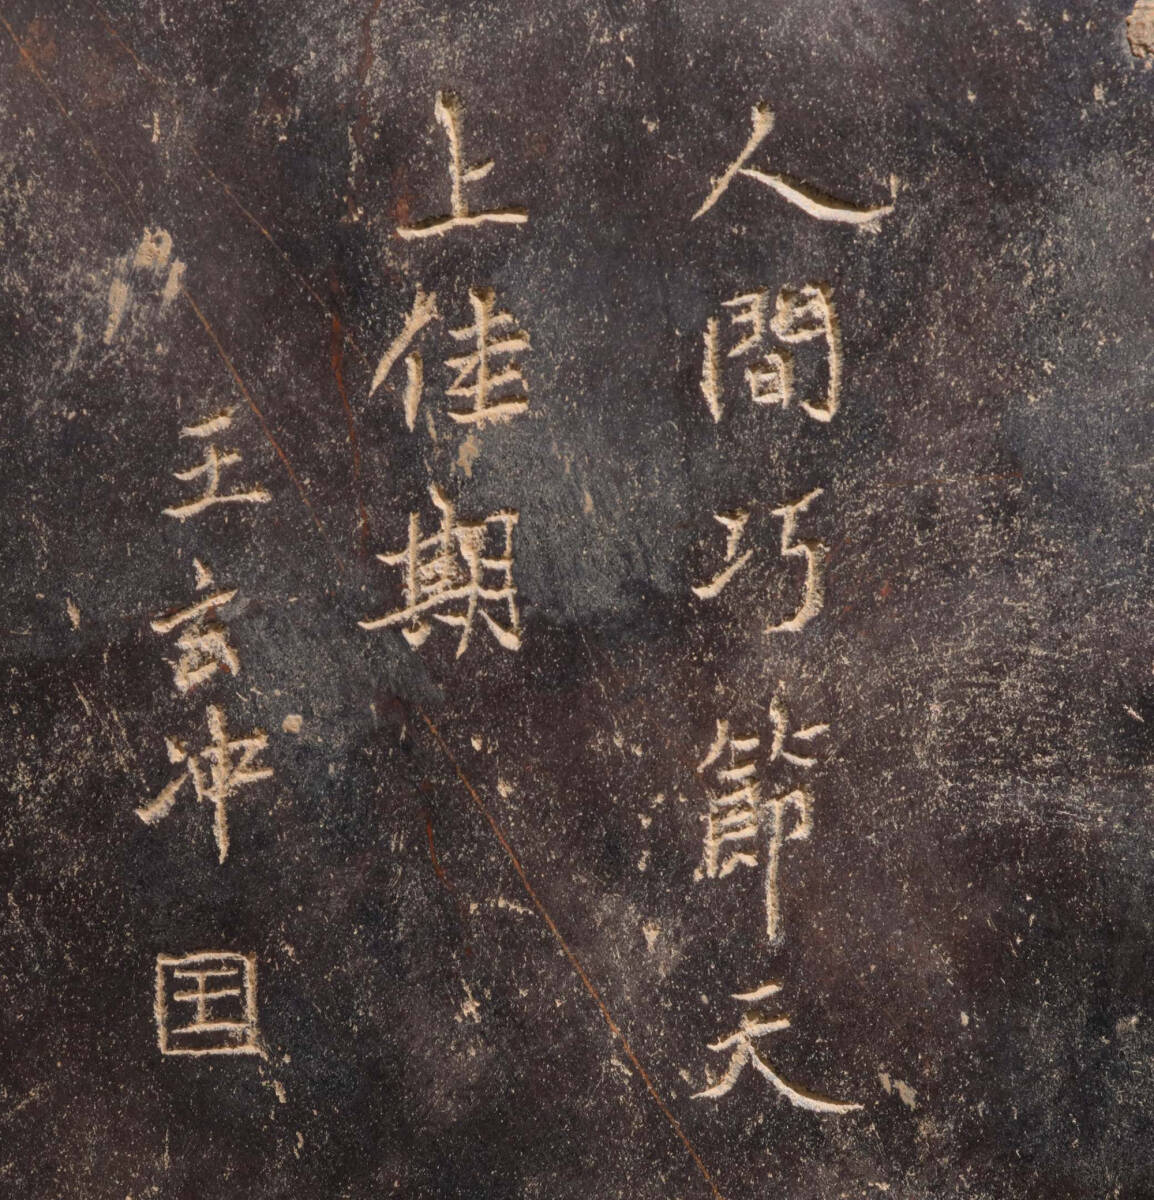 人間巧節天
上佳期
王玄冲
王